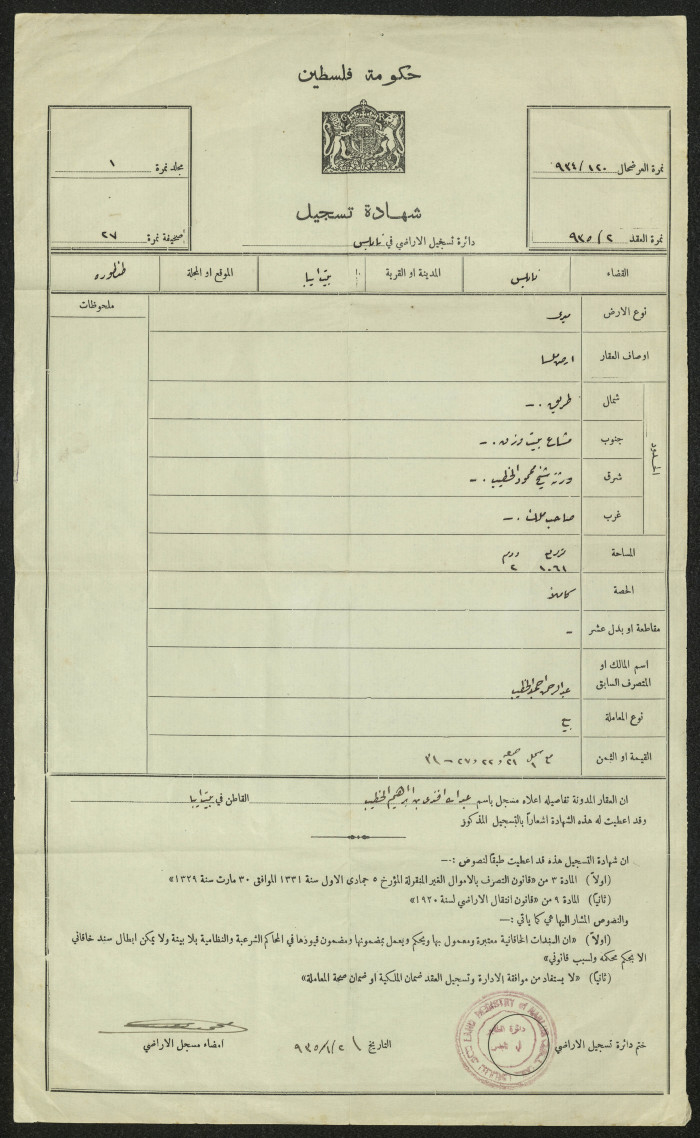 حكومة فلسطين
نمرة العرضحال ٩٣٤/١٢٠
نمرة العقد ٩٣٥/٢
مجلد نمرة ١
صحيفة نمرة ٢٧
شهادة تسجيل
دائرة تسجيل الاراضي في نابلس
القضاء نابلس المدينة او القرية بيت ايبا الموقع او المحلة طنطوره
ملحوظات
نوع الارض ميري
اوصاف العقار ارض ملسا
الحدود
شمال طريق ٠ –
جنوب مشاع بيت وزن ٠ –
شرق ورثة شيخ محمود الخطيب ٠ –
غرب صاحب ملك ٠ –
المساحة
١٠٦١ ٢
الحصة كاملا
مقاطعة او بدل عشر –
اسم المالك او
المتصرف السابق عبد الرحمن احمد الخطيب
نوع المعاملة بيع
القيمة او الثمن
ان العقار المدونة تفاصيله اعلاه مسجل باسم عبد الله افندي بن ابراهيم الخطيب القاطن في بيت ايبا
وقد اعطيت له هذه الشهادة اشعاراً بالتسجيل المذكور
ان شهادة التسجيل هذه قد اعطيت طبقاً لنصوص :—
(اولاً) المادة ٣ من «قانون التصرف بالاموال الغير المنقولة المؤرخ ٥ جمادى الاول سنة ١٣٣١ الموافق ٣٠ مارت سنة ١٣٢٩»
(ثانياً) المادة ٩ من «قانون انتقال الاراضي لسنة ١٩٢٠»
والنصوص المشار اليها هي كما ياتي :—
(اولاً) «ان السندات الخاقانية معتبرة ومعمول بها ويحكم ويعمل بمضمونها ومضمون قيودها في المحاكم الشرعية والنظامية بلا بينة ولا يمكن ابطال سند خاقاني
الا بحكم محكمه ولسبب قانوني»
(ثانياً) «لا يستفاد من موافقة الادارة وتسجيل العقد ضمان الملكية او ضمان صحة المعاملة»
LAND REGISTRY OF NABLUS
ختم دائرة تسجيل الاراضي التاريخ ٩٣٥/١/٢١ امضاء مسجل الاراضي